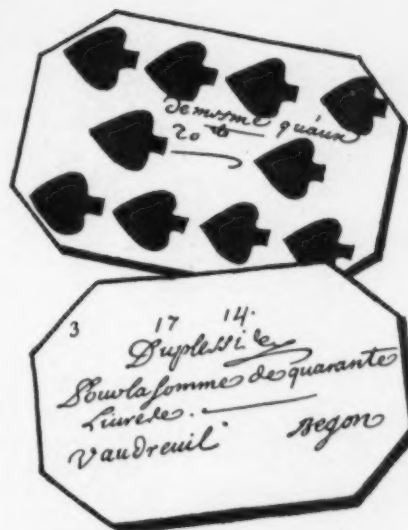 de mesme quaux
20 tt
3 17 14.
Duplessis
Pour la somme de quarante
Livres.
Vaudreuil Begon